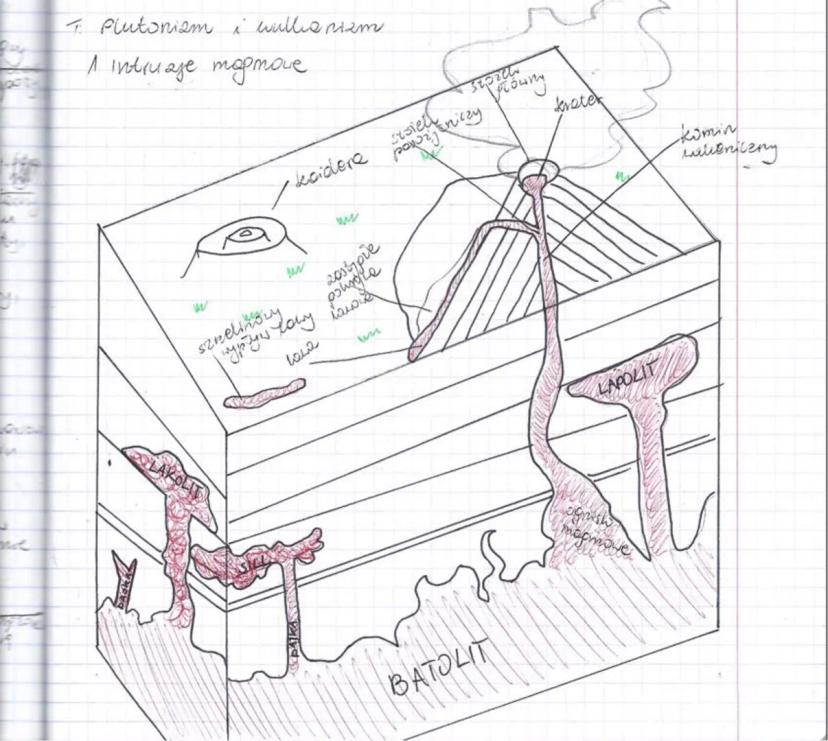 T: Plutonizm i wulkanizm
1 intruzje magmowe
stożek
główny
krater
stożek
pasożytniczy
komin
wulkaniczny
kaldera
zastygła
pokrywa
lawowa
szczelinowy
wypływ lawy
lawa
LAPOLIT
LAKOLIT
SILL
ognisko
magmowe
DAJKA
DAJKA
BATOLIT